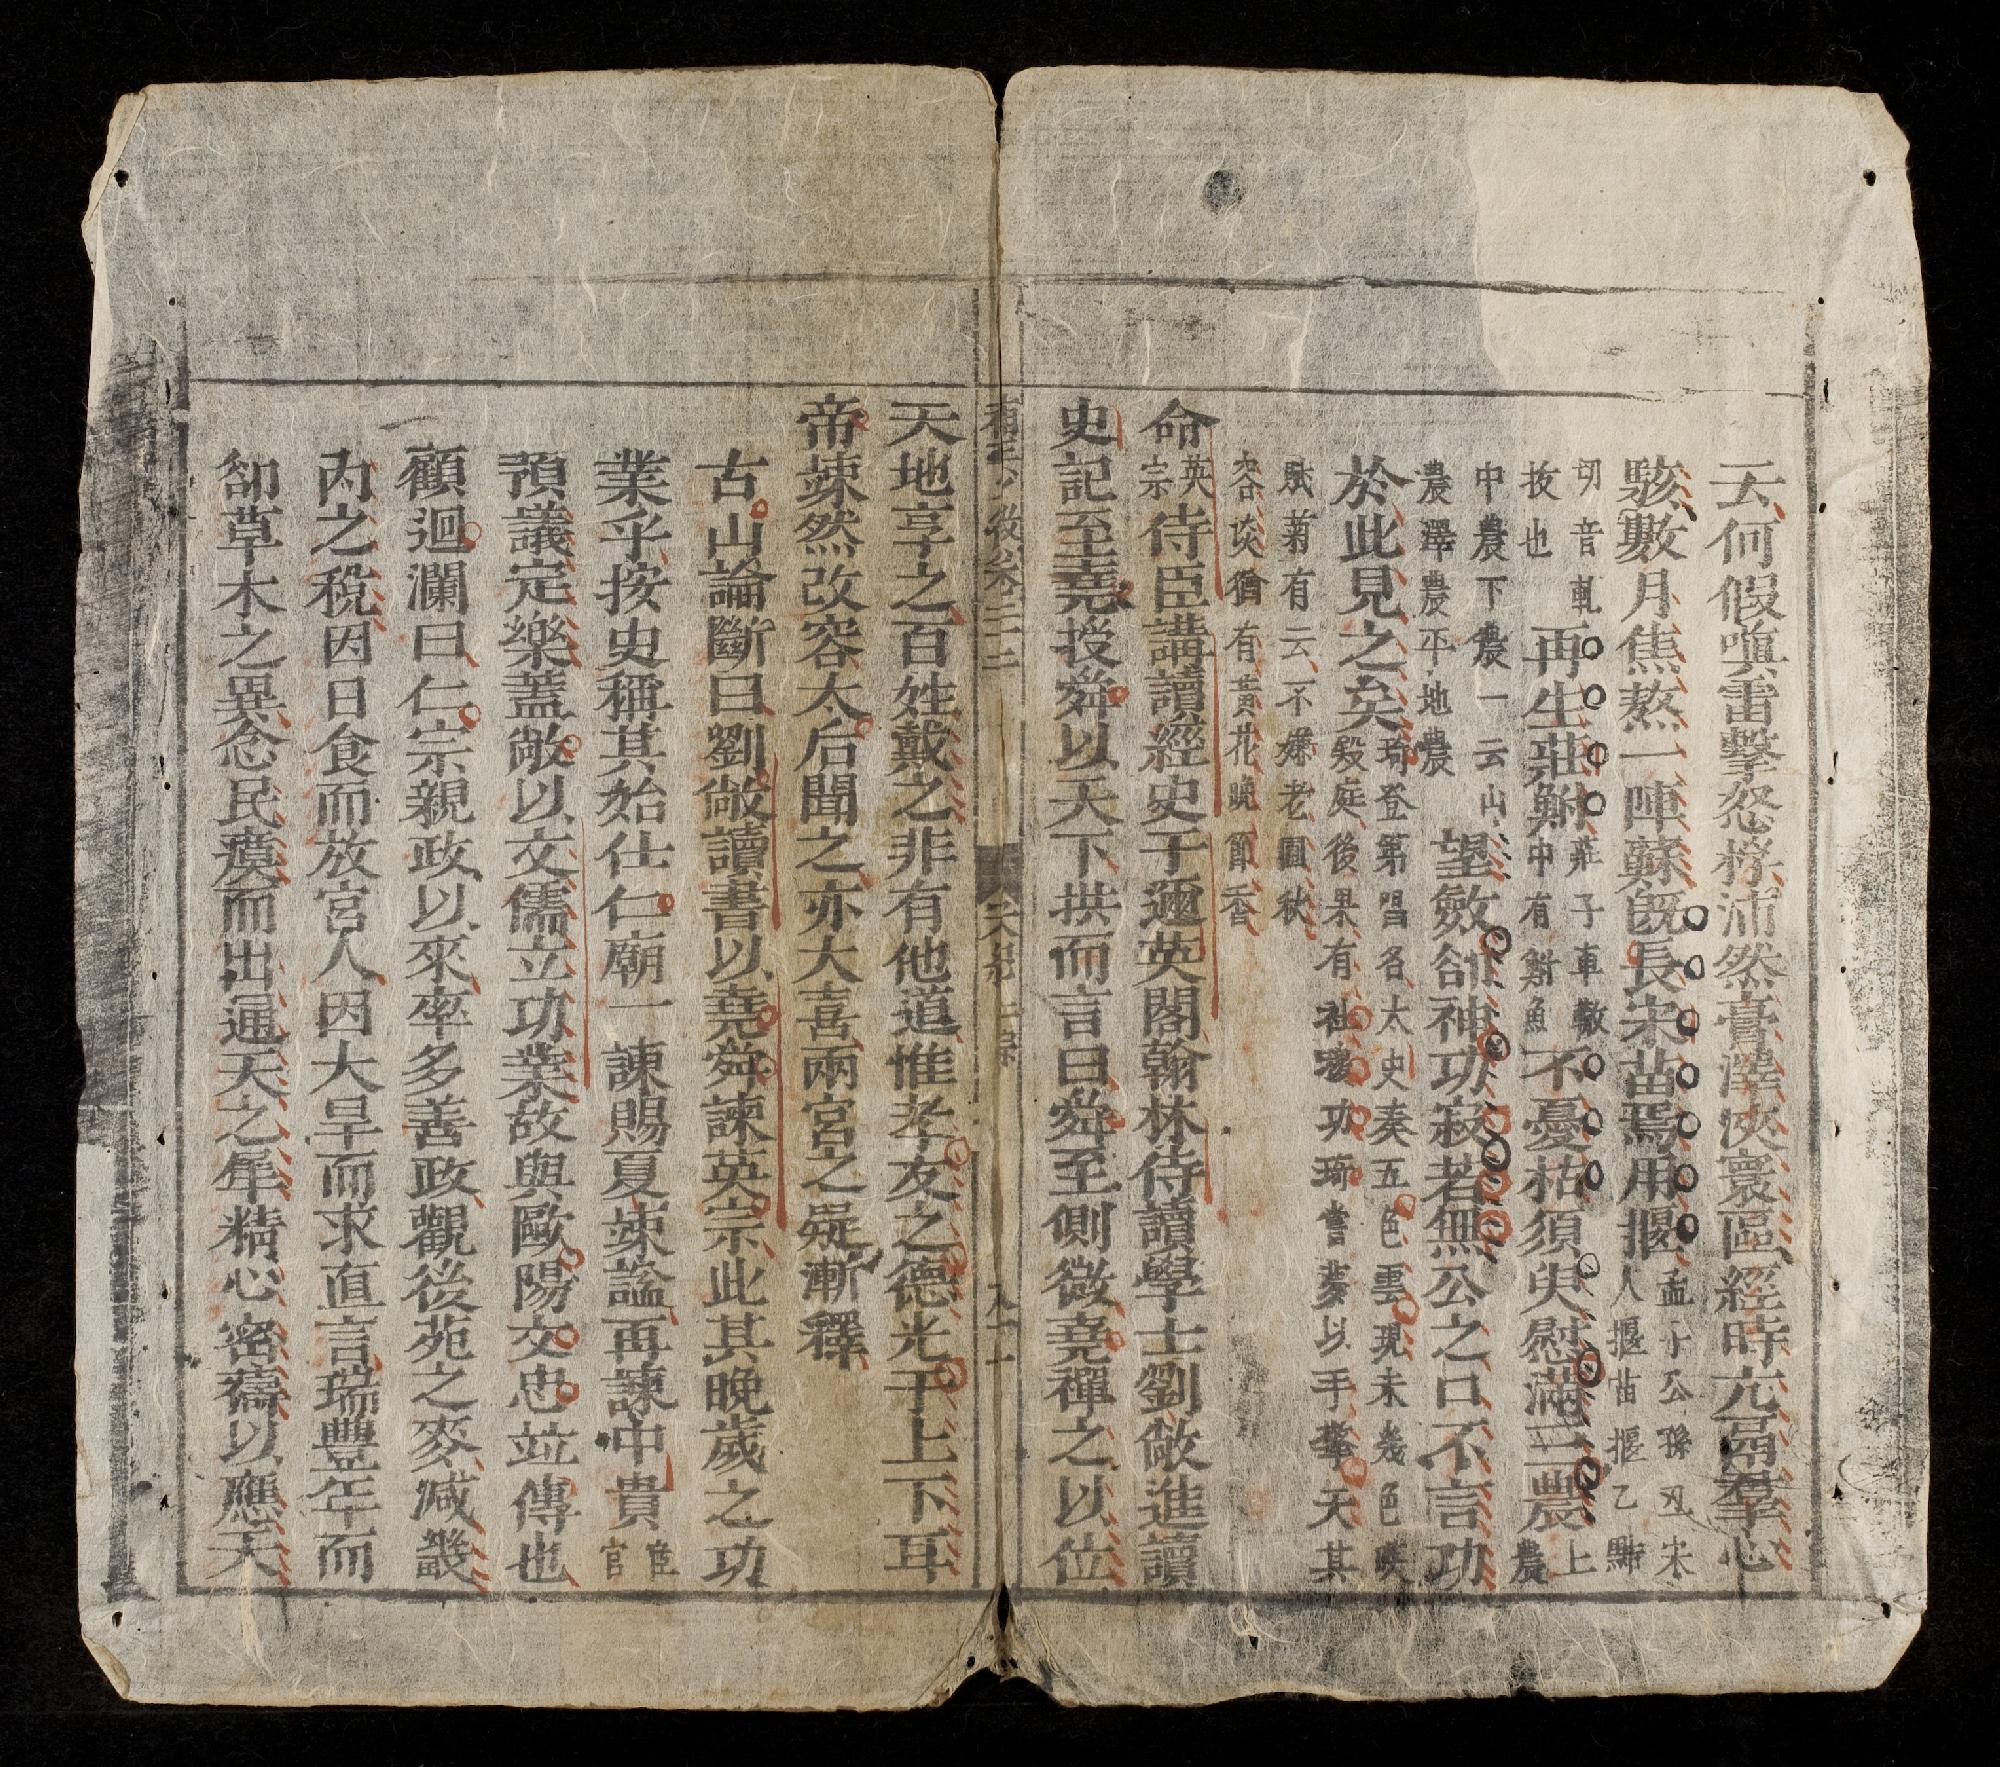 云何假嗔雷擊怒沛然膏澤浹寰區經時亢鬲羣心
駭數月焦熬一陣蘇旣長宋苗焉用揠孟子公孫丑宋人揠苗揠乙黠
切音軋拔也再生莊鮒莊子車轍中有鮒魚不憂枯須臾慰滿三農上農
中農下農一云山農澤農平地農望斂卻神功寂若無公之口不言功
於此見之矣琦登第唱名太史奏五色雲現未幾色映殿庭後果有社稷功琦嘗夢以手擎天其
賦菊有云不嫌老圃秋容淡猶有黃花晚節香
命英宗侍臣講讀經史于邇英閣翰林侍讀學士劉敞進讀
史記至堯授舜以天下拱而言曰舜至側微堯禪之以位
少微卷二十二
八十一
天地享之百姓戴之非有他道惟孝友之德光于上下耳
帝竦然改容太后聞之亦大喜兩宮之疑漸釋
古山論斷曰劉敞讀書以堯舜諫英宗此其晚歲之功
業乎按史稱其始仕仁廟一諫賜夏竦諡再諫中貴宦官
預議定樂蓋敞以文儒立功業故與歐陽文忠竝傳也
顧迴瀾曰仁宗親政以來率多善政觀後苑之麥減畿
內之稅因日食而放宮人因大旱而求直言瑞豐年而
卻草木之異念民瘼而出通天之犀精心密禱以應天